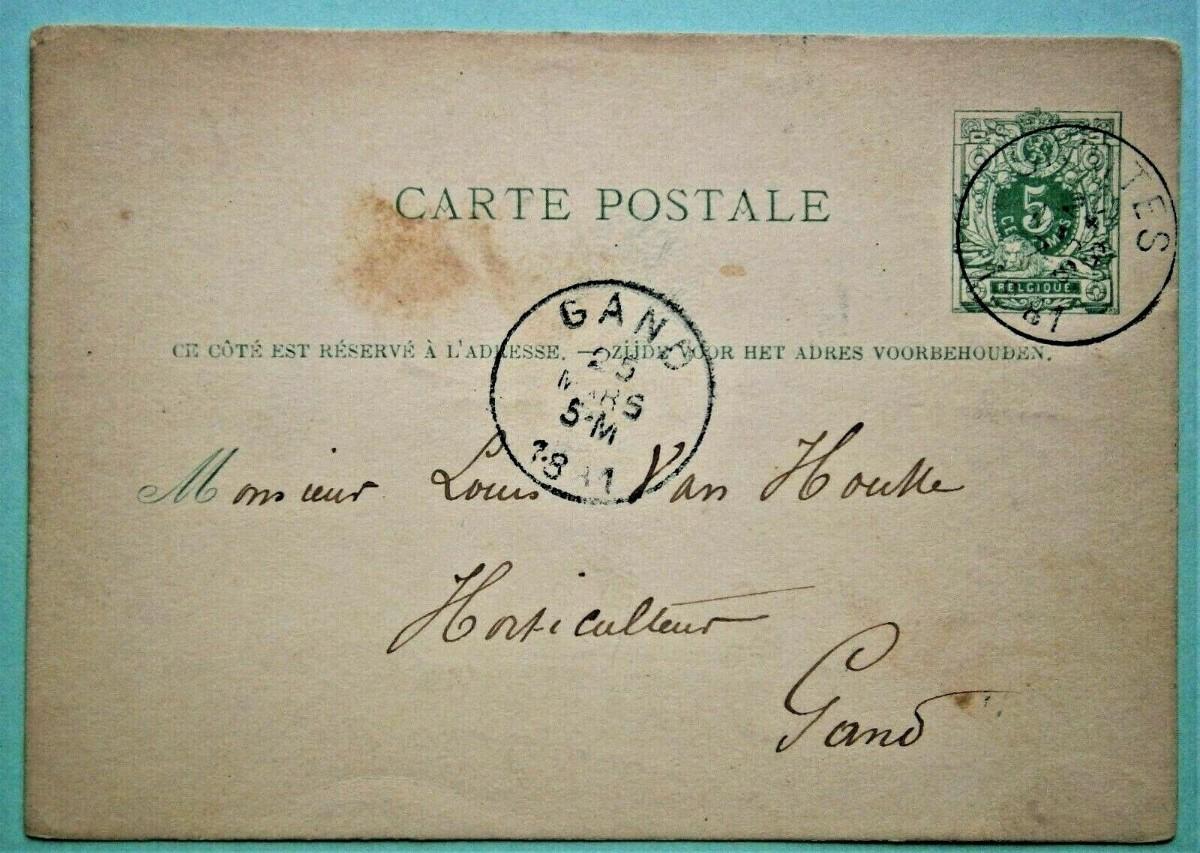 CARTE POSTALE
5
BELGIQUE
81
CE CÔTÉ EST RÉSERVÉ À L'ADRESSE. — ZIJDE VOOR HET ADRES VOORBEHOUDEN.
GAND
25
MARS
5-M
1881
Monsieur Louis Van Houtte
Horticulteur
Gand